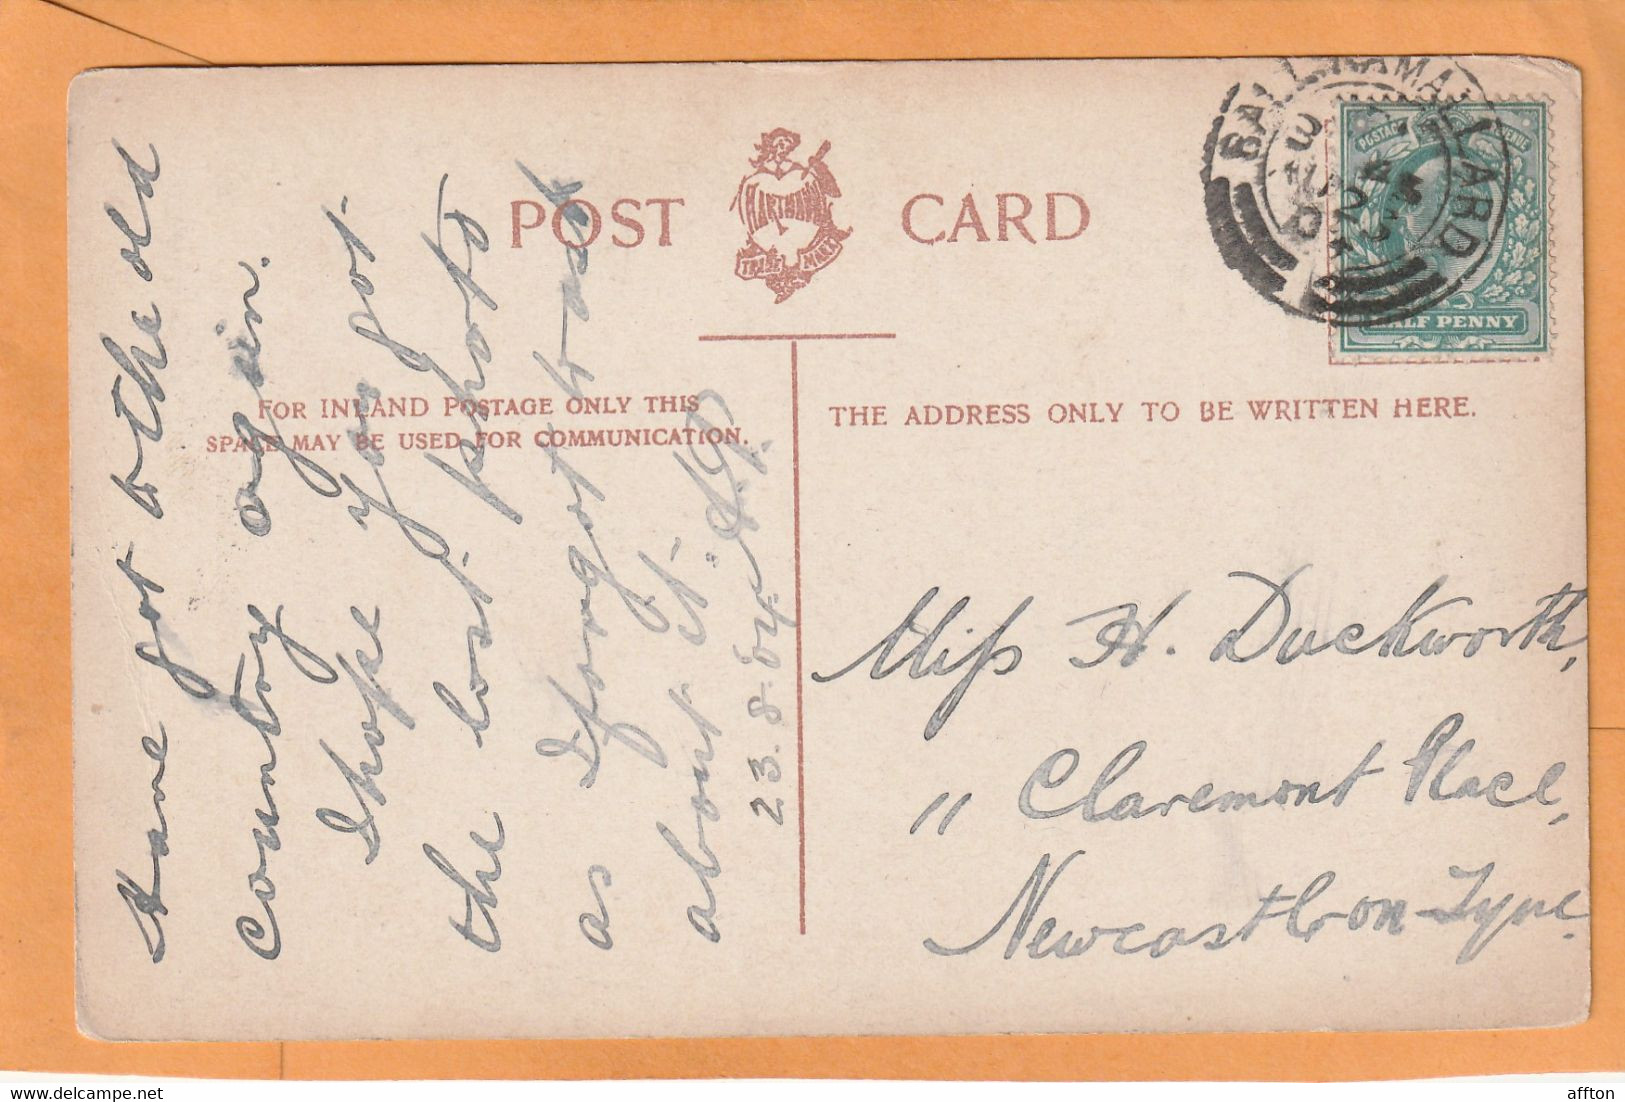 POST CARD
HARTMANN
TRADE MARK
BALLINAMALLARD
HALF PENNY
FOR INLAND POSTAGE ONLY THIS
SPACE MAY BE USED FOR COMMUNICATION.
THE ADDRESS ONLY TO BE WRITTEN HERE.
Have got to the old
country again.
I hope you got
the last photo
as I forgot to ask
about it.
23.8.04.
Miss H. Duckworth,
11 Claremont Place,
Newcastle on Tyne.
affton